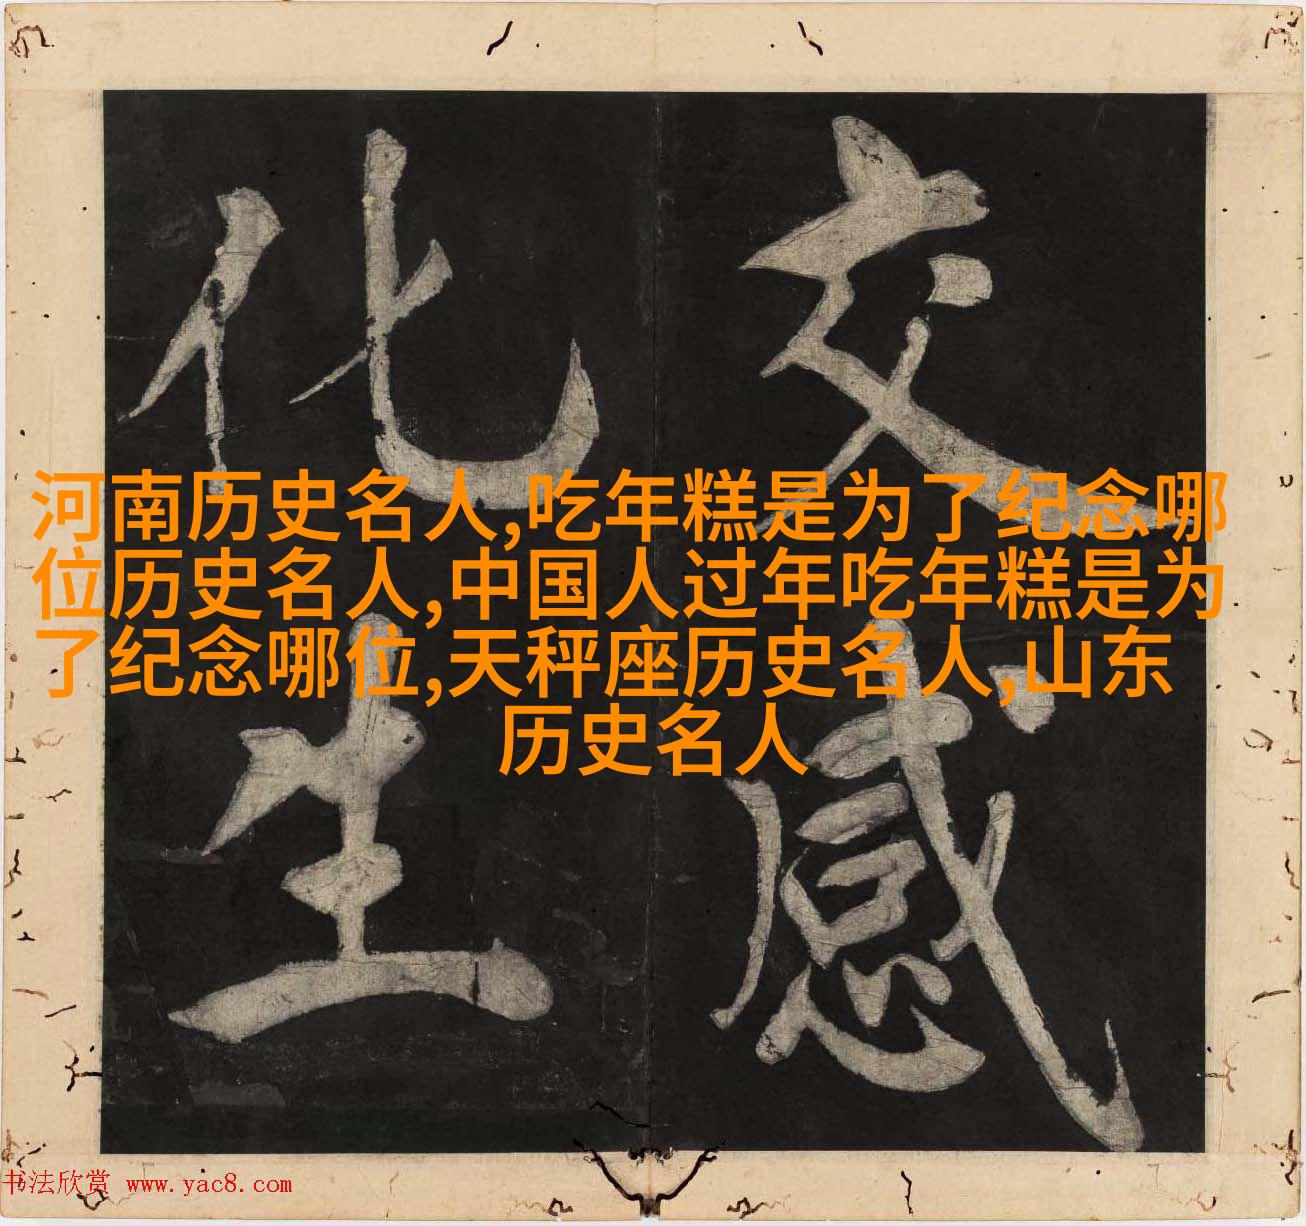 交感
化生
河南历史名人,吃年糕是为了纪念哪
位历史名人,中国人过年吃年糕是为
了纪念哪位,天秤座历史名人,山东
历史名人
书法欣赏 www.yac8.com